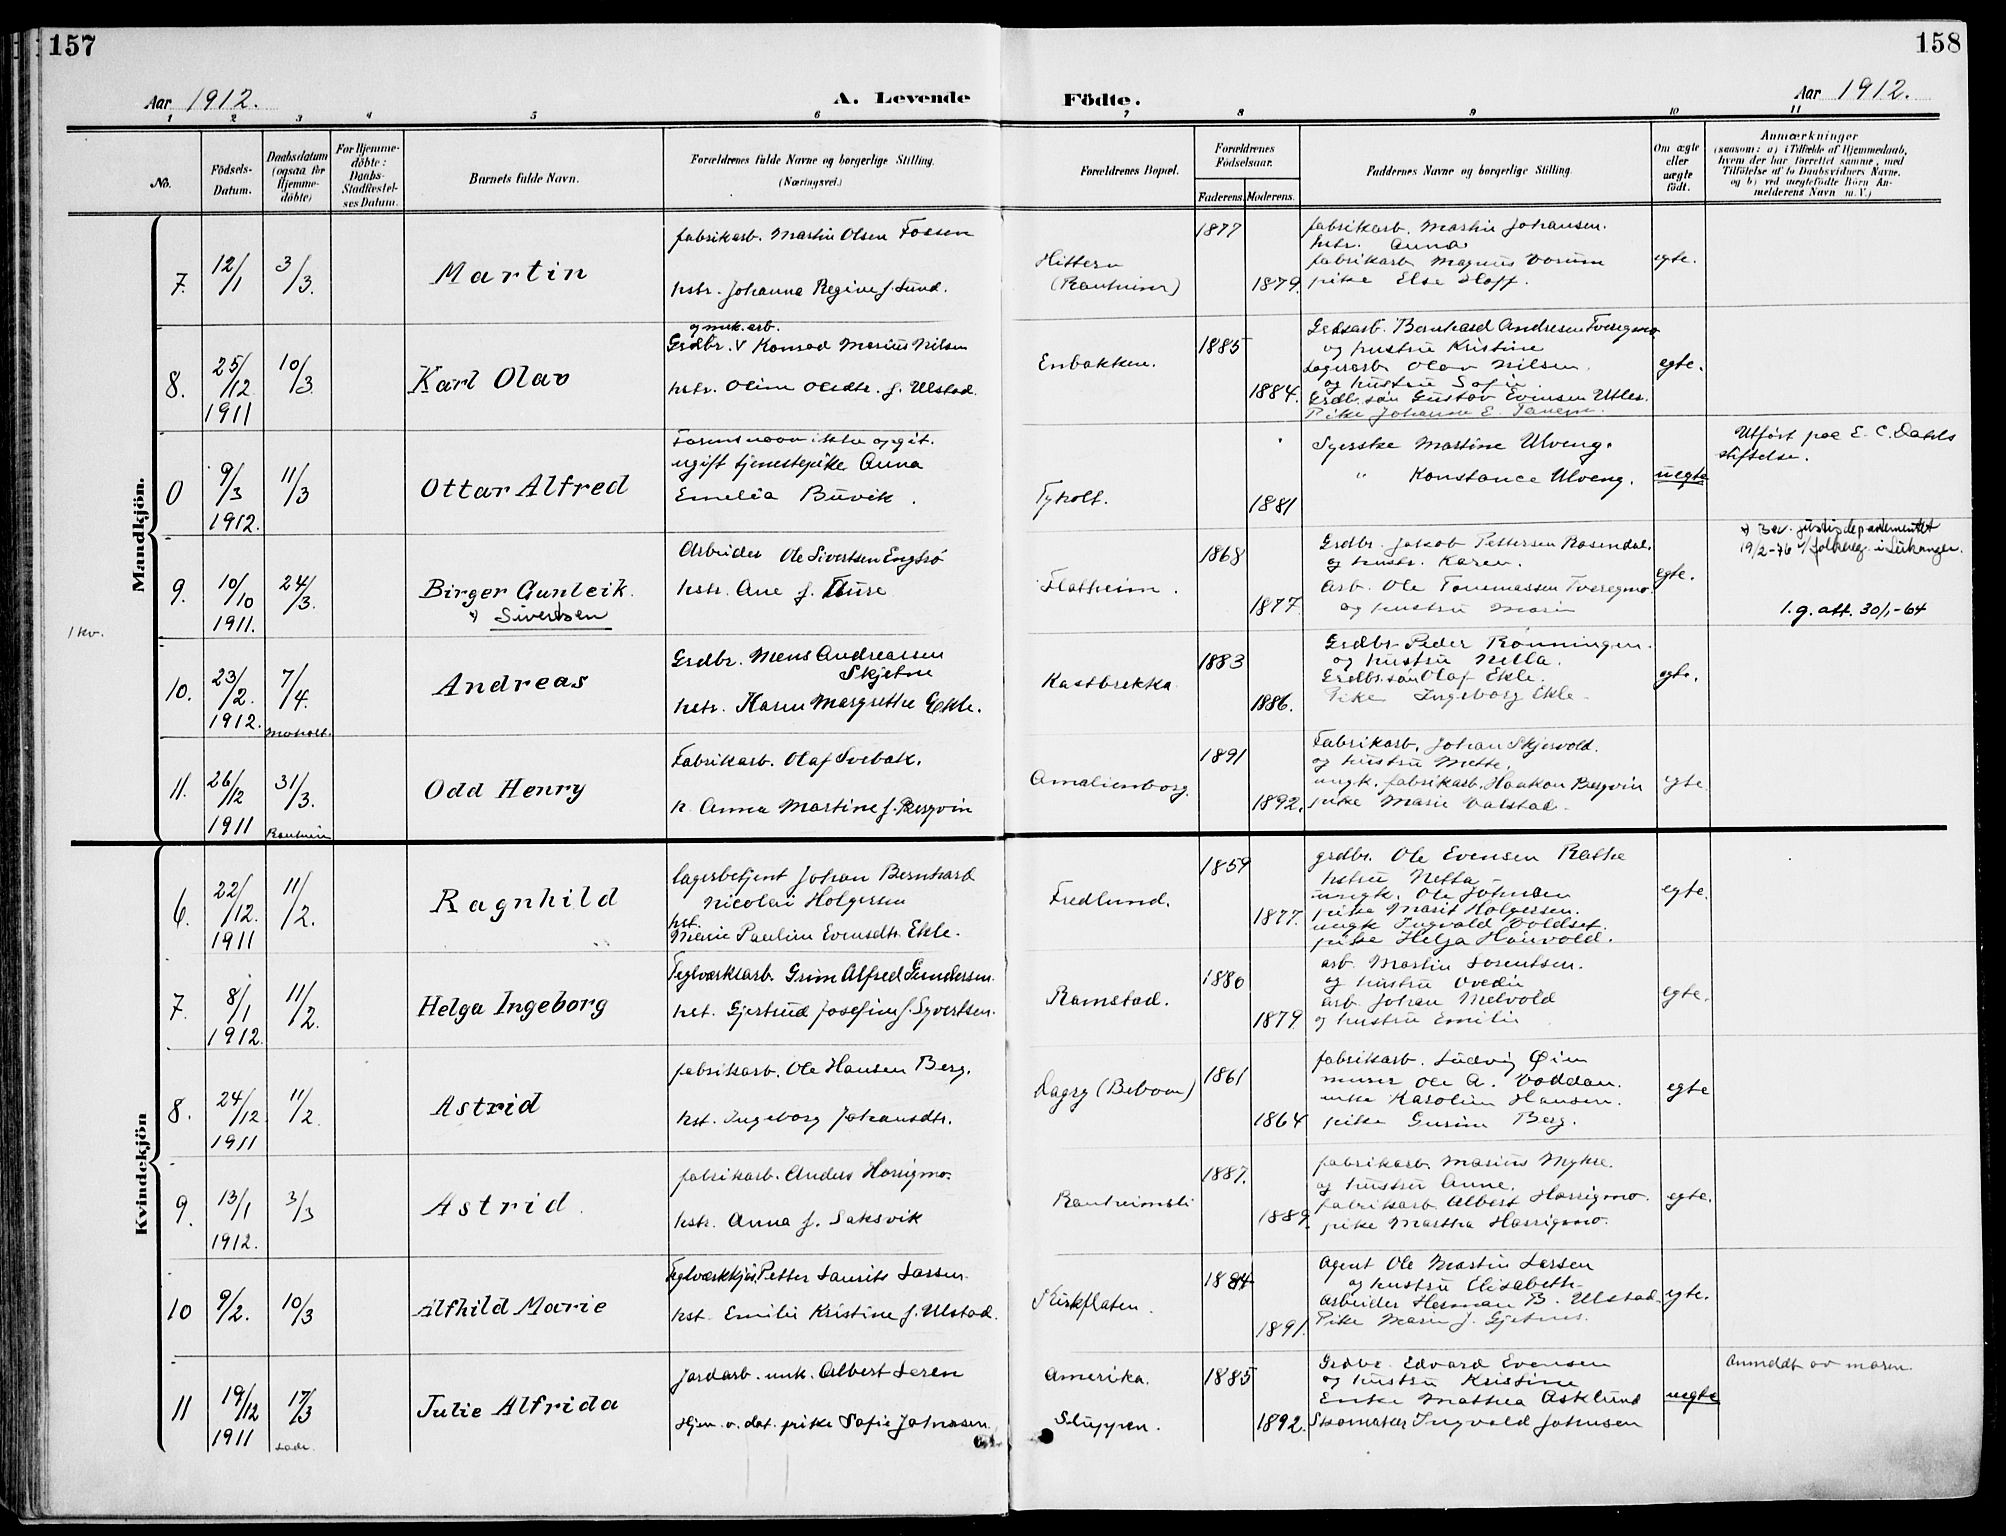 157
158
Aar 1912.
A. Levende
Födte.
Aar 1912.
1 2 3 4 5 6 7 8 9 10 11
No.
Födsels-
Datum.
Daabsdatum
(ogsaa for
Hjemme-
döbte)
For Hjemme-
döbte:
Daabs-
Stadfæstel-
ses Datum.
Barnets fulde Navn.
Forældrenes fulde Navne og borgerlige Stilling.
(Næringsvei.)
Forældrenes Bopæl.
Forældrenes
Födselsaar.
Faderens. Moderens.
Faddernes Navne og borgerlige Stilling.
Om ægte
eller
uægte
födt.
Anmærkninger
(saasom: a) i Tilfælde af Hjemmedaab,
hvem der har forrettet samme, med
Tilföielse af to Daabsvidners Navne,
og b) ved uægtefödte Börn An-
melderens Navn m. V.)
Mandkjön.
7. 12/1 3/3.
Martin
fabrikarb. Martin Olsen Fossen
hstr. Johanna Regine f. Lund.
Hittern
(Ranheim)
1877
1879.
fabrikarb. Martin Johansen.
hstr. Anna
fabrikarb. Magnus Vorum
pike Else Hoff.
egte.
8. 25/12 1911 10/3
Karl Olav
og murk. arb.
Grdbr. V Konrad Marius Nilsen
hstr. Oline Olsdtr. f. Ulstad.
Enbakken.
1885
1884.
Grdsarb. Bernhard Andresen Tveregmo
og hustru Kristine
Lagerarb. Olav Nilsen.
og hustru Sofie.
Grdb. søn Gustav Evensen Utler.
Pike Johanna E. Tanem.
egte.
0 9/3 1912. 11/3
Ottar Alfred
Farens navn ikke opgit.
ugift tjenestepike Anna
Emelia Buvik.
Tyholt.
1881
Syerske Martine Ulveng.
" Konstance Ulveng.
uegte
Utført paa E. C. Dahls
stiftelse.
9. 10/10 1911. 24/3.
Birger Gunleik.
Sivertsen
Arbeider Ole Sivertsen Engbrø
hstr. Ane f. Ture
Flatheim.
1868
1877.
Grdbr. Jakob Pettersen Rosendal.
og hustr. Karen.
Arb. Ole Tommassen Tveregmo.
og hustru Marie
egte.
Bev. justisdepartementet
19/2-76 v/folkereg. i Leikanger.
1.g. att. 30/1-64
1 kv.
10. 23/2. 1912. 7/4.
Moholt.
Andreas
Grdbr. Mens Andreassen
Skjetne
hstr. Karen Margrethe Ekle.
Kastbrekka
1883
1886.
Grdbr. Peder Rønningen.
og hustru Nella.
Grdbr. søn Olaf Ekle.
Pike Ingeborg Ekle
egte.
11. 26/12 1911 31/3.
Ranheim
Odd Henry
Fabrikarb. Olaf Svebak.
h. Anna Martine f. Bergvin
Amalienborg.
1891
1892.
Fabrikarb. Johan Skjervold.
og hustru Mette.
ungk. fabrikarb. Haakon Bergvin
pike Marie Valstad.
egte.
Kvindekjön
6. 22/12. 1911 11/2.
Ragnhild
Lagerbetjent Johan Bernhard
Nicolai Holgersen
hst.
Marie Pauline Evensdtr. Ekle.
Fredlund.
1859
1877.
grdbr. Ole Evensen Rathe
hstru Netta
ungk. Ole Johnsen
pike Marit Holgersen.
ungk Ingvald Voldset.
pike Helga Hauvold.
egte.
7. 8/1 1912. 11/2.
Helga Ingeborg
Teglverksarb. Grim Alfred Gundersen.
hst. Gjertrud Josefine f. Syvertsen.
Ramstad.
1880
1879
arb. Martin Lorentsen.
og hustru Ovedie
arb. Johan Melvold
og hustru Emilie
egte.
8. 24/12. 1911 11/2
Astrid
fabrikarb. Ole Hansen Berg.
hst. Ingeborg Johansdtr.
Dagry (Beboen)
1861
1864
fabrikarb. Ludvig Øien
murer Ole A. Voddan.
enke Karoline Hansen.
pike Gurine Berg.
egte
9. 13/1 1912. 3/3
Astrid.
fabrikarb. Anders Horrigmo.
hstr. Anna f. Saksvik
Ranheimsli
1887.
1889.
fabrikarb. Marius Myhre.
og hustru Anne.
fabrikarb. Albert Horrigmo.
pike Martha Horrigmo.
egte.
10 9/2. 10/3
Alfhild Marie
Teglverkkjør. Petter Laurits Larsen
hst. Emilie Kristine f. Ulstad.
Kirkflaten.
1884
1891.
Agent Ole Martin Larsen
og hustru Elisabeth
Arbeider Herman B. Ulstad.
Pike Marie J. Gjetnes.
egte.
11 19/12 1911 17/3
Lade.
Julie Alfrida
Jordarb. unk. Albert Leren
Hjem. v. dat. pike Sofie Johnsen
Amerika.
Sluppen.
1885
1892.
Grdbr. Edvard Evensen
og hustru Kristine
Enke Mathea Asklund
Skomaker Ingvald Johnsen
uegte
Anmeldt av moren.